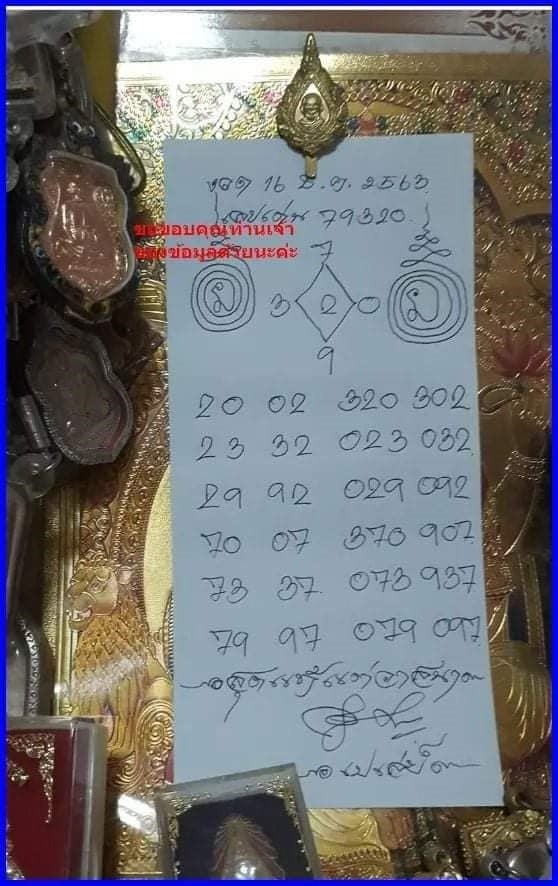 งวด 16 ธ.ค. 2563
เลขเด่น 79320
ขอขอบคุณท่านเจ้า
ของข้อมูลด้วยนะค่ะ
7
3 2 0
9
20 02 320 302
23 32 023 032
29 92 029 092
70 07 370 907
73 37 073 937
79 97 079 097